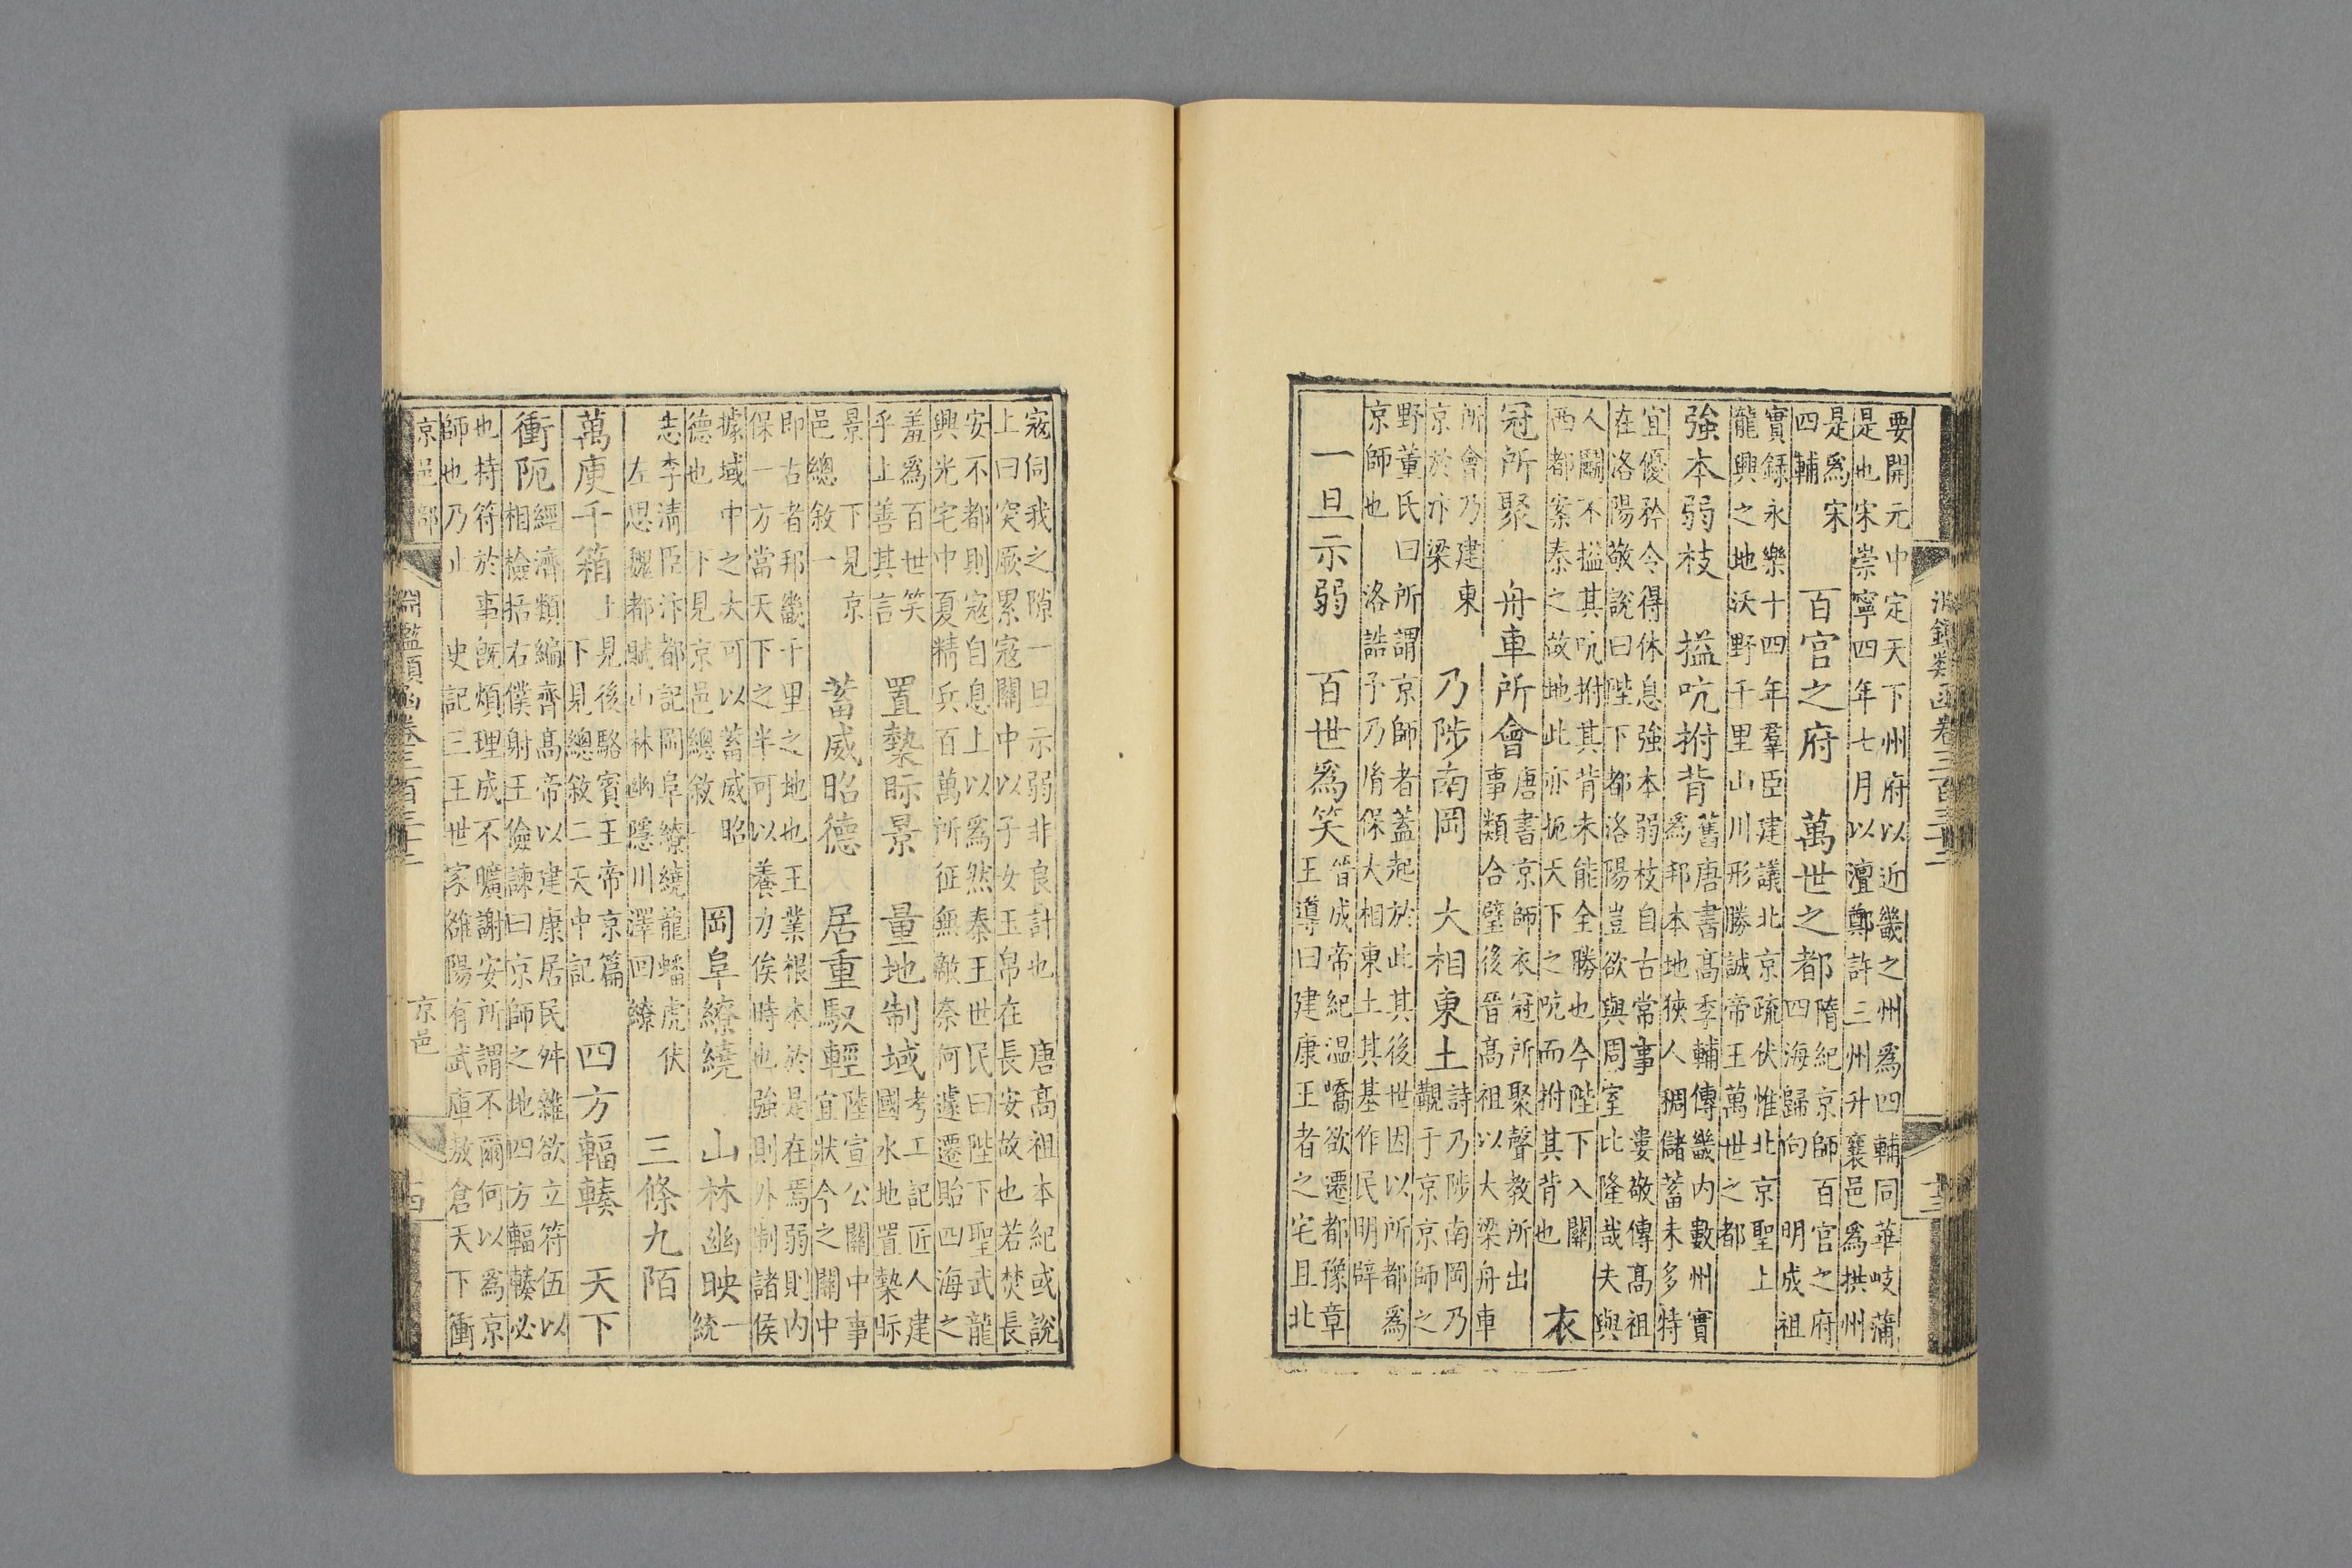 淵鑑類函卷三百三十三
十三
要開元中定天下州府以近畿之州爲四輔同華岐蒲
是也宋崇寧四年七月以澶鄭許三州升襄邑爲拱州
是爲宋
四輔
百官之府 萬世之都
隋紀京師百官之府
四海歸向 明成祖
實録永樂十四年羣臣建議北京疏伏惟北京聖上
龍興之地沃野千里山川形勝誠帝王萬世之都
強本弱枝 搤吭拊背
舊唐書髙季輔傳畿内數州實
爲邦本地狹人稠儲蓄未多特
宜優矜令得休息強本弱枝自古常事 婁敬傳髙祖
在洛陽敬説曰陛下都洛陽豈欲與周室比隆哉夫與
人鬬不搤其吭拊其背未能全勝也今陛下入關
西都案秦之故地此亦扼天下之吭而拊其背也
衣
冠所聚 舟車所會
唐書京師衣冠所聚聲教所出
事類合璧後晉髙祖以大梁舟車
所會乃建東
京於汴梁
乃陟南岡 大相東土
詩乃陟南岡乃
覯于京京師之
野董氏曰所謂京師者蓋起於此其後世因以所都爲
京師也 洛誥予乃胤保大相東土其基作民明辟
一旦示弱 百世爲笑
晉成帝紀温嶠欲遷都豫章
王導曰建康王者之宅且北
寇伺我之隙一旦示弱非良計也 唐髙祖本紀或説
上曰突厥累寇關中以子女玉帛在長安故也若焚長
安不都則寇自息上以爲然秦王世民曰陛下聖武龍
興光宅中夏精兵百萬所征無敵奈何遽遷貽四海之
羞爲百世笑
乎上善其言
置槷眎景 量地制域
考工記匠人建
國水地置槷眎
景 下見京
邑總敘一
蓄威昭德 居重馭輕
陸宣公關中事
宜狀今之關中
即古者邦畿千里之地也王業根本於是在焉弱則内
保一方當天下之半可以養力俟時也強則外制諸侯
據域中之大可以蓄威昭
德也 下見京邑總敘
岡阜繚繞 山林幽映
一
統
志李清臣汴都記岡阜繚繞龍蟠虎伏
左思魏都賦山林幽隱川澤回繚
三條九陌
萬庾千箱
上見後駱賓王帝京篇
下見總敘二天中記
四方輻輳 天下
衝阨
經濟類編齊髙帝以建康居民舛雜欲立符伍以
相檢括右僕射王儉諫曰京師之地四方輻輳必
也持符於事既煩理成不曠謝安所謂不爾何以爲京
師也乃止 史記三王世家雒陽有武庫敖倉天下衝
京邑部
淵鑑類函卷三百三十三
京邑